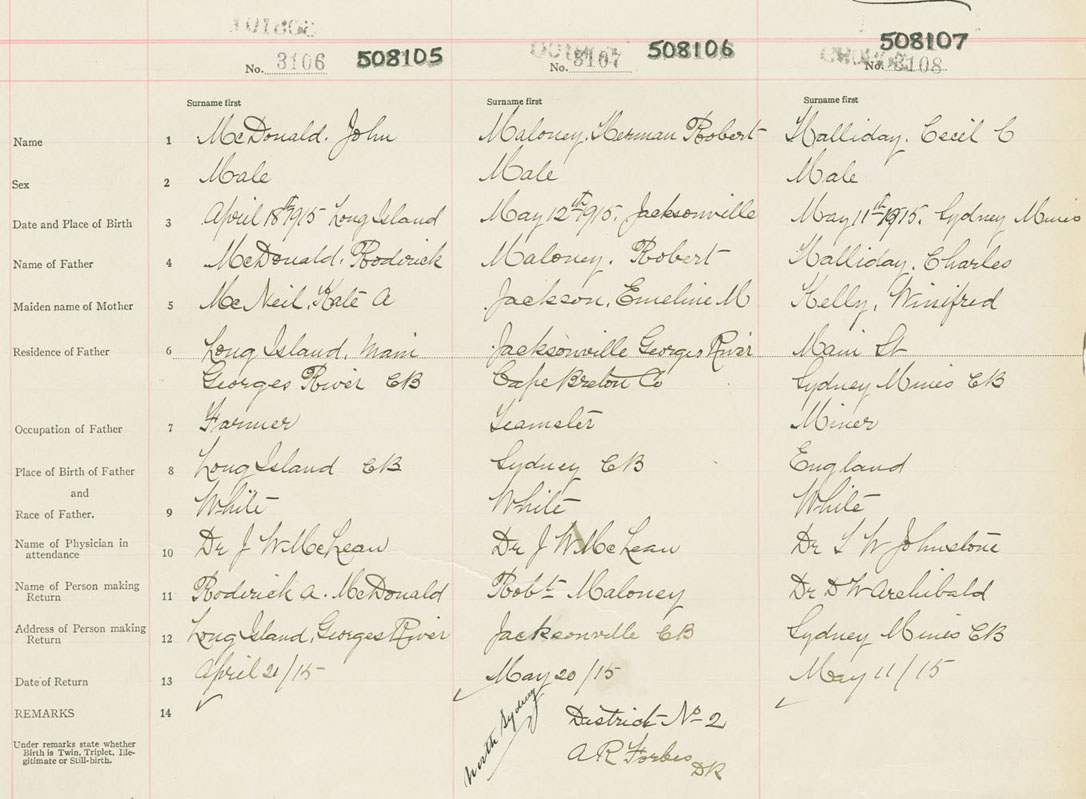 No. 3106 508105 No. 3107 508106 508107 No. 3108
Surname first Surname first Surname first
Name 1 McDonald. John Maloney. Herman Robert Halliday. Cecil C
Sex 2 Male Male Male
Date and Place of Birth 3 April 18th 1915 Long Island May 12th 1915. Jacksonville May 11th 1915. Sydney Mines
Name of Father 4 McDonald. Roderick Maloney. Robert Halliday. Charles
Maiden name of Mother 5 McNeil, Kate A Jackson, Emeline M Kelly, Winifred
Residence of Father 6 Long Island. Main Jacksonville Georges River Main St
Georges River CB Cape Breton Co Sydney Mines CB
Occupation of Father 7 Farmer Teamster Miner
Place of Birth of Father 8 Long Island CB Sydney CB England
and
Race of Father. 9 White White White
Name of Physician in
attendance 10 Dr J W McLean Dr J W McLean Dr L W Johnstone
Name of Person making
Return 11 Roderick A. McDonald Robt Maloney Dr D W Archibald
Address of Person making
Return 12 Long Island, Georges River Jacksonville CB Sydney Mines CB
Date of Return 13 April 21/15 May 20/15 May 11/15
REMARKS 14
Under remarks state whether
Birth is Twin, Triplet, Ille-
gitimate or Still-birth.
North Sydney
District No 2
A R Forbes
DR